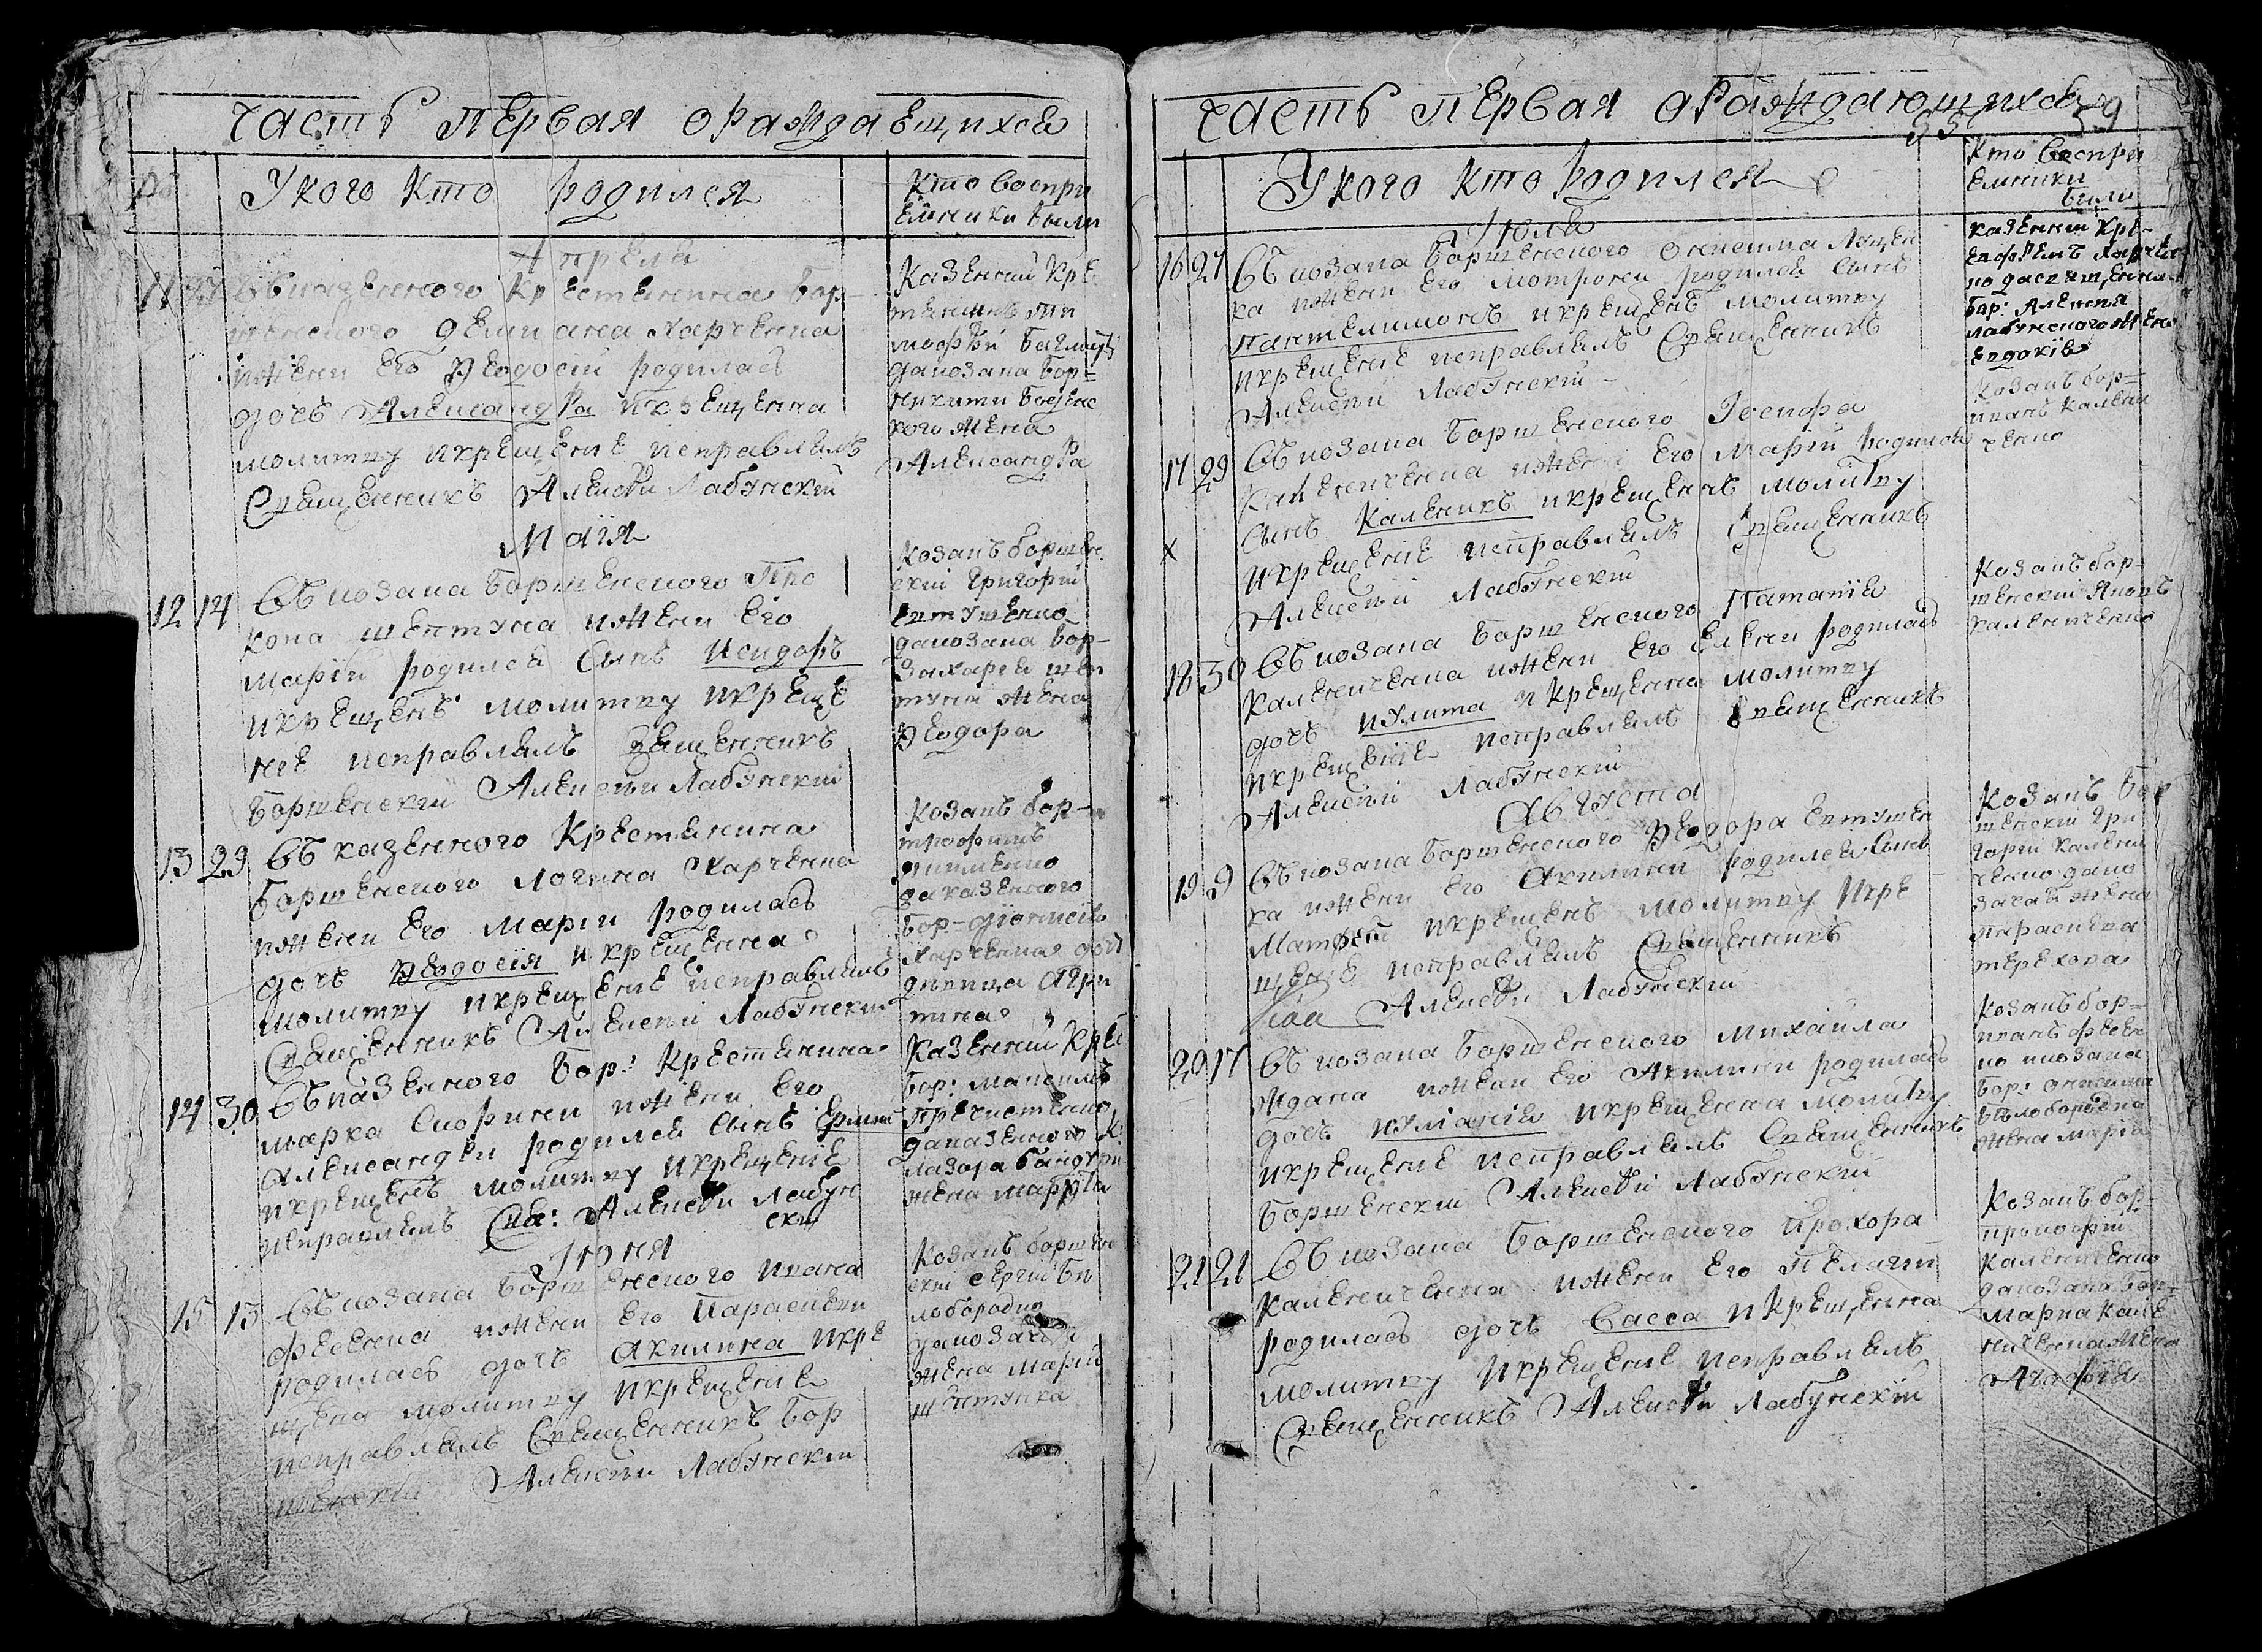 Часть первая ораждаещихся
№
У кого кто родился
Кто воспри
емники были
Апреля
11
У казенного крестянина Бор
шенского Демиана Харченка
и жени его Ѳеодосіи родилась
дочь Александра и крещенна
молитву и крещение исправлялъ
Священникъ Алексѣй Лабунский
Казенний кре
стянинъ Ти
мофѣй
да козака Бор=
Никити
кого жена
Александра
Маия
12 14 У козака Боршенского Про
копа Шептуна и жени его
Марии родился синъ Исидоръ
и крещенъ молитву и креще
ние исправлялъ Священникъ
Боршенский Алексѣй Лабунский
Козакъ Боршен
ский Григорий
Евтушенко
да козака Бор-
Захария Шеп
туна жена
Ѳеодора
13 29 У казенного крестянина
Боршенского Логина Харченка
и жени его Марии родилась
дочь Ѳеодосія и крещенна
молитву и крещение исправлялъ
Священникъ Алексѣй Лабунский
Козакъ Бор-
Трофимъ
да казенного
Бор-
Харченка доч
дивица Агри
пина
14 30 У казенного Бор: крестянина
Марка и жени его
Александри родился синъ
и крещенъ молитву и крещение
исправлялъ Свя: Алексѣй Лабун
ский
Казенний кре
Бор: Мануилъ
Пречистенко
да казенного
Лазора
жена Марѳа
Июня
15 13 У козака Боршенского Ивана
Фесенка и жени его Параскеви
родилась дочь Акилина и кре
щена молитву и крещение
исправлялъ Священникъ Бор
шенский Алексѣй Лабунский
Козакъ Боршен
ский Сергий Бѣ
лобородко
да козач
жена Мария
Шептунка
Часть первая ораждающихся
59
У кого кто родился
Кто воспри
емники
были
Июля
16 27 У козака Боршенского Онисима Лущен
ка и жени его Мотрони родился синъ
Пантелимонъ и крещенъ молитву
и крещение исправлялъ Священникъ
Алексѣй Лабунский
Казенний кре-
Харчен
ко да священника
Бор: Алексѣя
Лабунского жена
Евдокия
17 29 У козака Боршенского Иосифа
Каленченка и жени его Марии родился
синъ Каленикъ и крещенъ молитву
и крещение исправлялъ Священникъ
Алексѣй Лабунский
Козакъ Бор-
Иванъ Кален
ченко
х
18 30 У козака Боршенского Патапія
Каленченка и жени его Елени родилась
дочь Иулита и крещенна молитву
и крещение исправлялъ Священникъ
Алексѣй Лабунский
Козакъ Бор-
шенский Яковъ
Каленченко
Августа
19 9 У козака Боршенского Ѳеодора Евтушен
ка и жени его Акилини родился синъ
Матфей и крещенъ молитву и кре
щение исправлялъ Священникъ
Алексѣй Лабунский
Козакъ Бор
шенский Гри
горий Кален
ченко да ко
зака жена
Параскева
Терехова
20 17 У козака Боршенского Михайла
Ждана и жени его Акилини родилась
дочь Иулианія и крещенна молитву
и крещение исправлялъ Священникъ
Боршенский Алексѣй Лабунский
Козакъ Бор-
Иванъ Фесен
ко и козака
Бор: Онисима
Бѣлобородка
жена Мария
21 21 У козака Боршенского Прохора
Каленченка и жени его Пелагии
родилась дочь Васса и крещенна
молитву и крещение исправлялъ
Священникъ Алексѣй Лабунский
Козакъ Бор-
Прокофий
Каленченко
да козака Бор-
Марка Кале
ниченка жена
Агафія